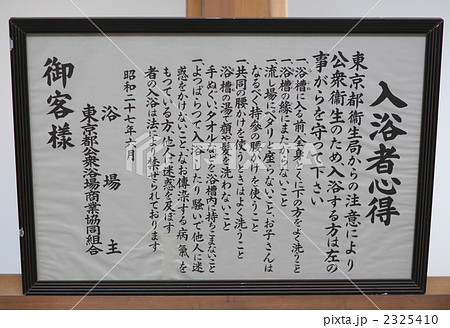 入浴者心得
東京都衛生局からの注意により
公衆衛生のため、入浴する方は左の
事がらを守って下さい
一、浴槽に入る前、全身とくに下の方をよく洗うこと
一、浴槽の縁にまたがらないこと
一、流し場にペタリと座らないこと、お子さんは
なるべく持参の腰かけを使うこと
一、共同の腰かけを使うときはよく洗うこと
一、浴槽の湯で顔や髪を洗わないこと
手ぬぐい、タオルなどを浴槽内に持ちこまないこと
一、よっぱらって入浴したり騒いで他人に迷
惑をかけないこと、なお傳染する病氣を
もっている方、他人に迷惑を及ぼす
者の入浴は法により禁ぜられております
昭和二十七年六月
浴場主
東京都公衆浴場商業協同組合
御客様
pixta.jp - 2325410